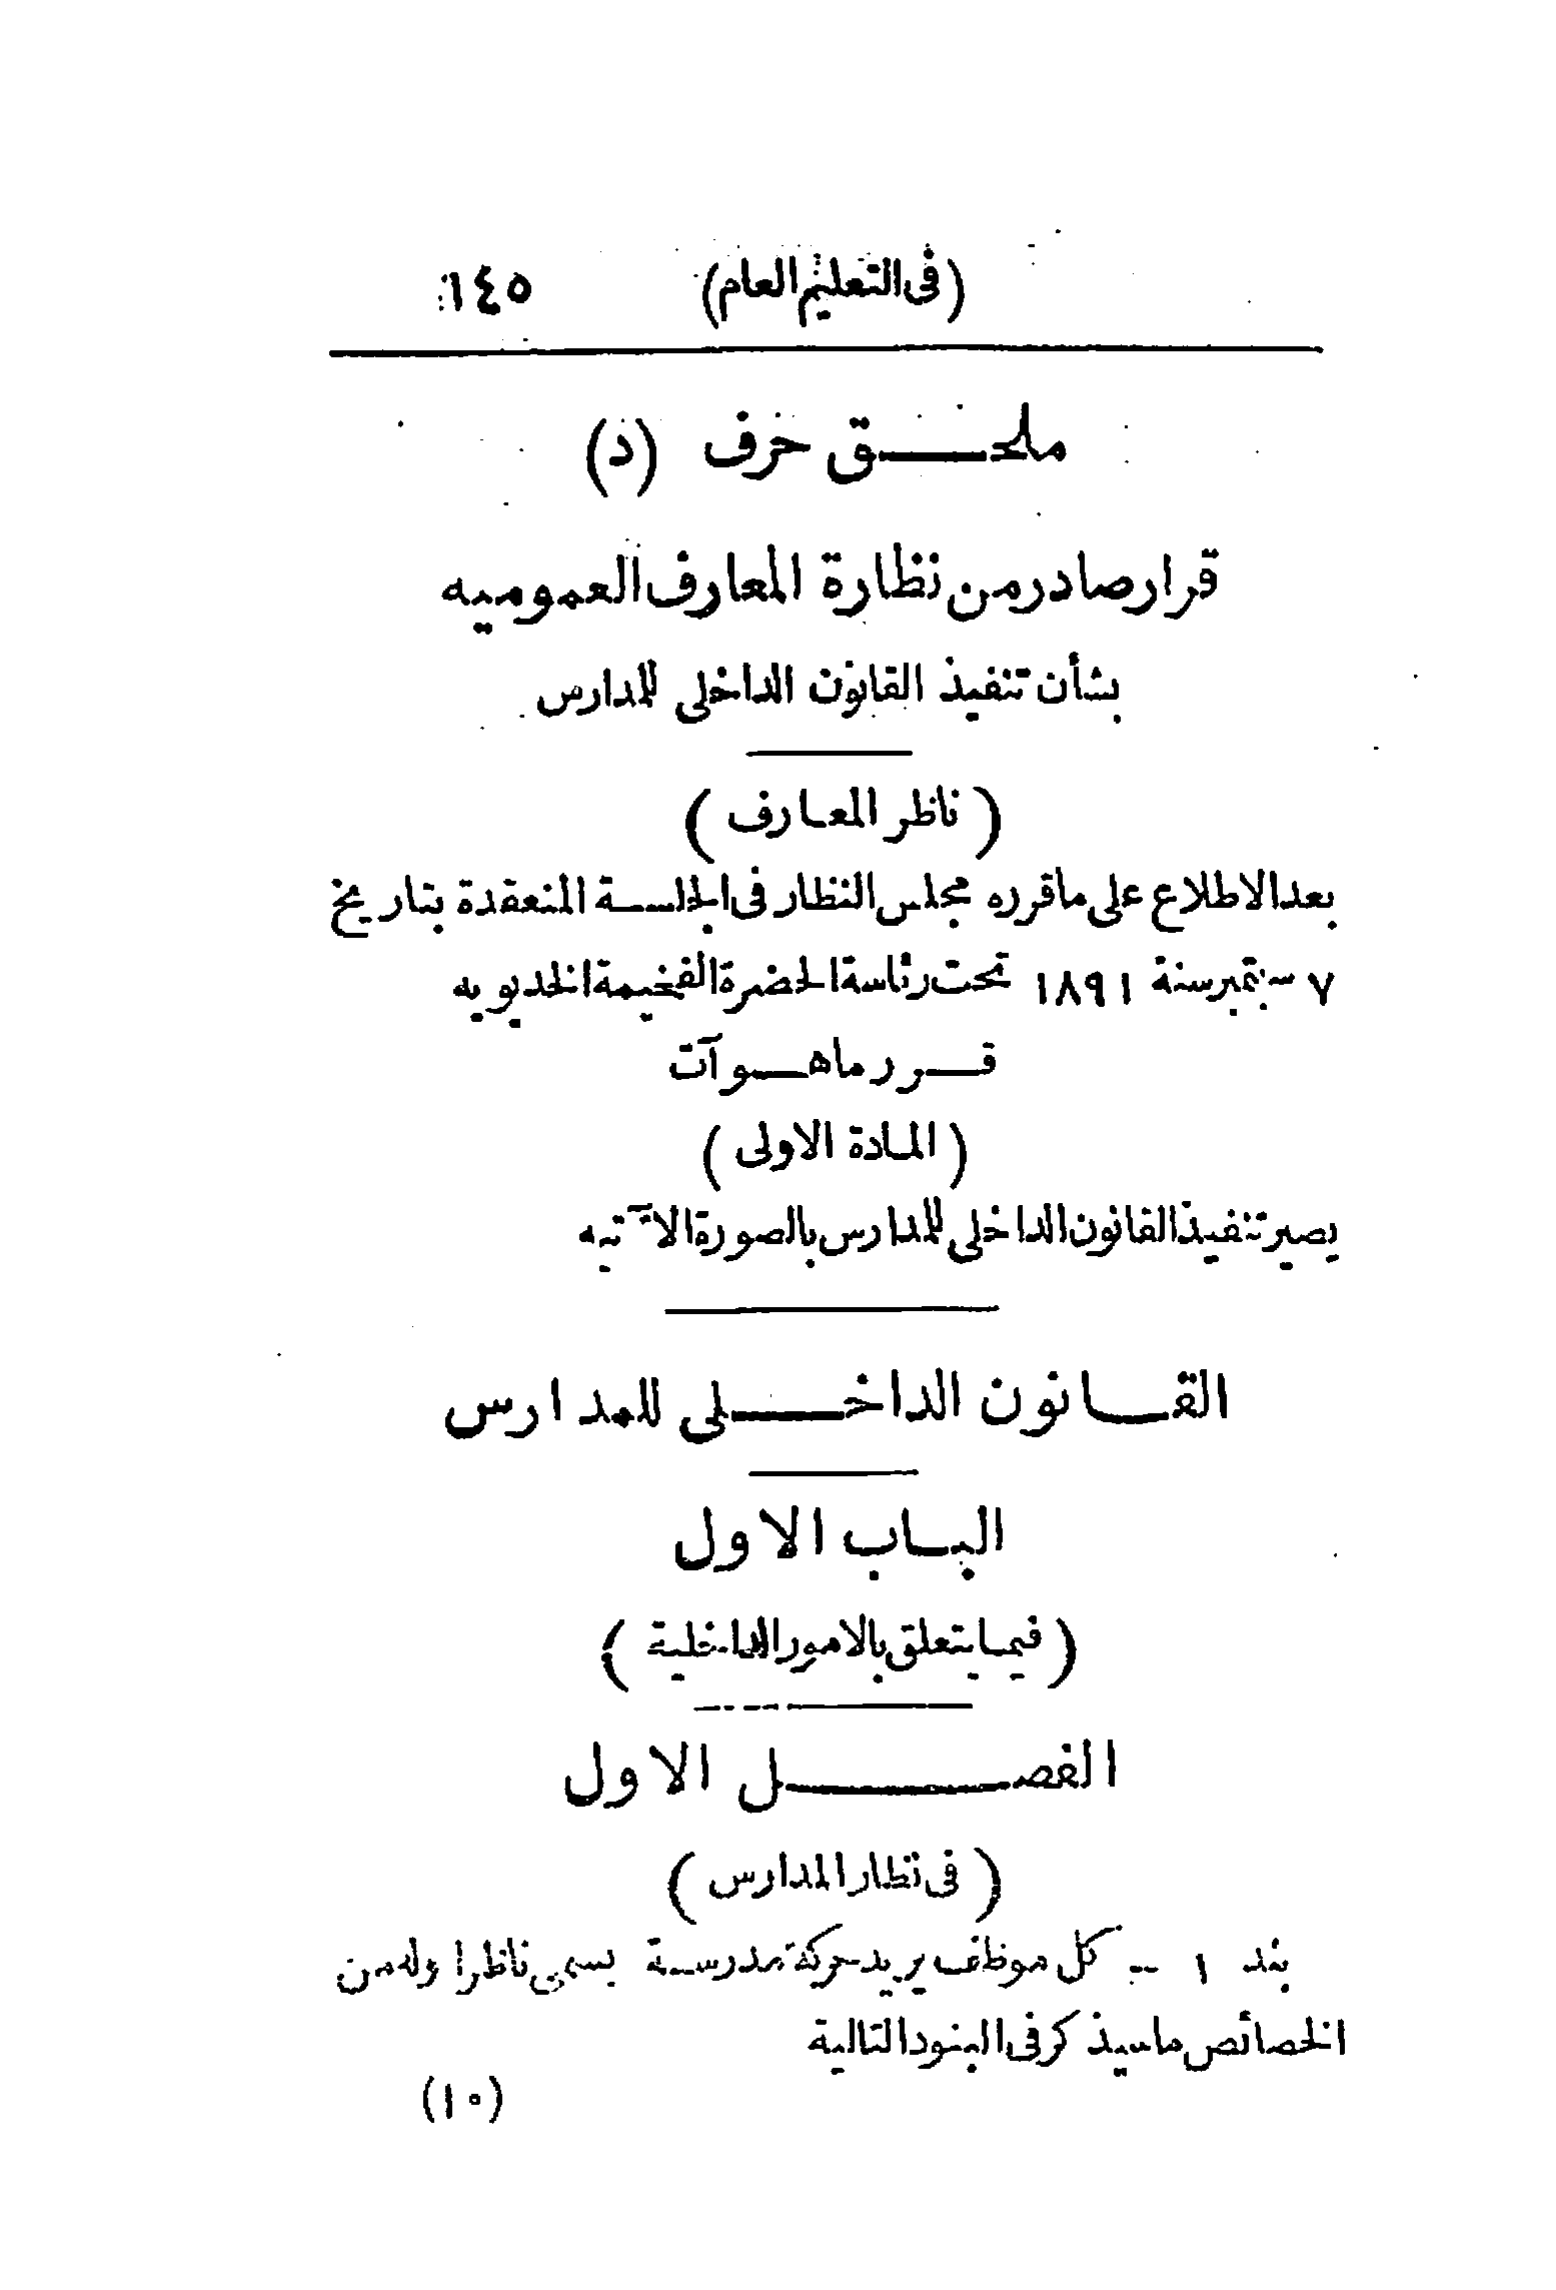 (فى التعليم العام) ١٤٥
ملحق حرف (د)
قرار صادر من نظارة المعارف العموميه
بشأن تنفيذ القانون الداخلى للمدارس
(ناظر المعارف)
بعد الاطلاع على ماقرره مجلس النظار فى الجلسة المنعقدة بتاريخ
٧ سبتمبر سنة ١٨٩١ تحت رئاسة الحضرة الفخيمة الخديويه
قرر ماهو آت
(المادة الاولى)
يصير تنفيذ القانون الداخلى للمدارس بالصورة الآتيه
القانون الداخلى للمدارس
الباب الاول
(فيما يتعلق بالامور الداخلية)
الفصل الاول
(فى نظار المدارس)
بند ١ - كل موظف يريد حركة مدرسة يسمى ناظرا وله من
الخصائص ماسيذكر فى البنود التالية
(١٠)